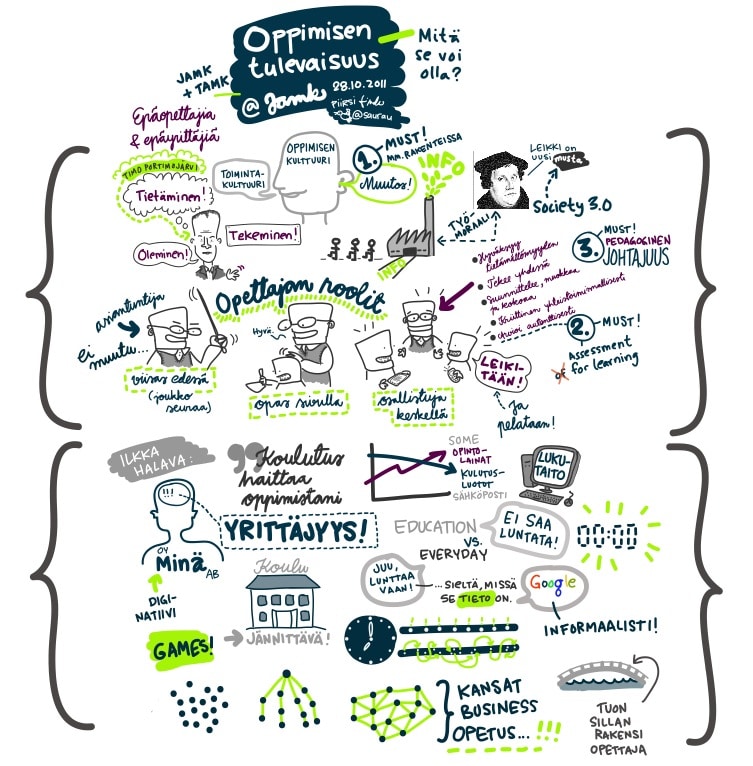 Oppimisen
tulevaisuus
@ Jamk
28.10.2011
Piirsi
@saurau
Mitä
se voi
olla?
JAMK
+ TAMK
Epäopettajia
& epäyrittäjiä
TIMO PORTIMOJÄRVI
Tietäminen!
Oleminen!
Tekeminen!
TOIMINTA-
KULTTUURI
OPPIMISEN
KULTTUURI
1. MUST!
MM. RAKENTEISSA
Muutos!
INFO
INFO
TYÖ-
MORAALI
LEIKKI ON
UUSI musta
Society 3.0
3. MUST!
PEDAGOGINEN
JOHTAJUUS
• Hyväksyy
tietämättömyyden
• Tekee yhdessä
• Suunnittelee, muokkaa
ja kokoaa
• Kriittinen yltiöoptimistisesti
autenttisesti
2. MUST!
Assessment
of for learning
Opettajan roolit
asiantuntija
ei
muutu...
viisas edessä
(joukko
seuraa)
Hyvä.
opas sivulla
osallistuja
keskellä
LEIKI-
TÄÄN!
Ja
pelataan!
ILKKA
HALAVA:
"Koulutus
haittaa
oppimistani
SOME
OPINTO-
LAINAT
KULUTUS-
LUOTOT
SÄHKÖPOSTI
LUKU-
TAITO
!!!
YRITTÄJYYS!
OY
Minä
AB
DIGI-
NATIIVI
EDUCATION
VS.
EVERYDAY
EI SAA
LUNTATA!
00:00
Koulu
JUU,
LUNTTAA
VAAN!
...SIELTÄ, MISSÄ
SE TIETO ON.
Google
INFORMAALISTI!
GAMES!
JÄNNITTÄVÄ!
KANSAT
BUSINESS
OPETUS...!!!
TUON
SILLAN
RAKENSI
OPETTAJA